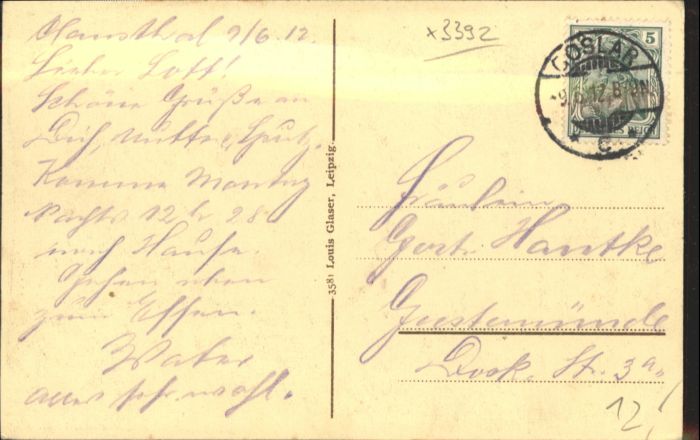 Clausthal 9/6.12.
Lieber Lott!
Schöne Grüße an
Dich, Mutter,
Komme Montag
Nachts 12 h 28
nach Hause.
Gehen eben
zum Essen.
Vater
alles sehr wohl.
3581 Louis Glaser, Leipzig.
x3392
5
GOSLAR
-9.6.12.8-9N.
c
Fräulein
Gert. Hantke
Geestemünde
Dock Str. 3a.
12,